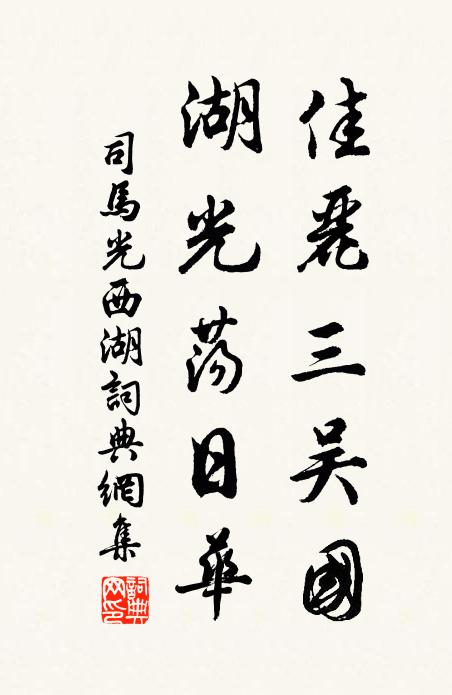 佳麗三吴國
湖光荡日華
司馬光西湖詞典網集
詞典網印